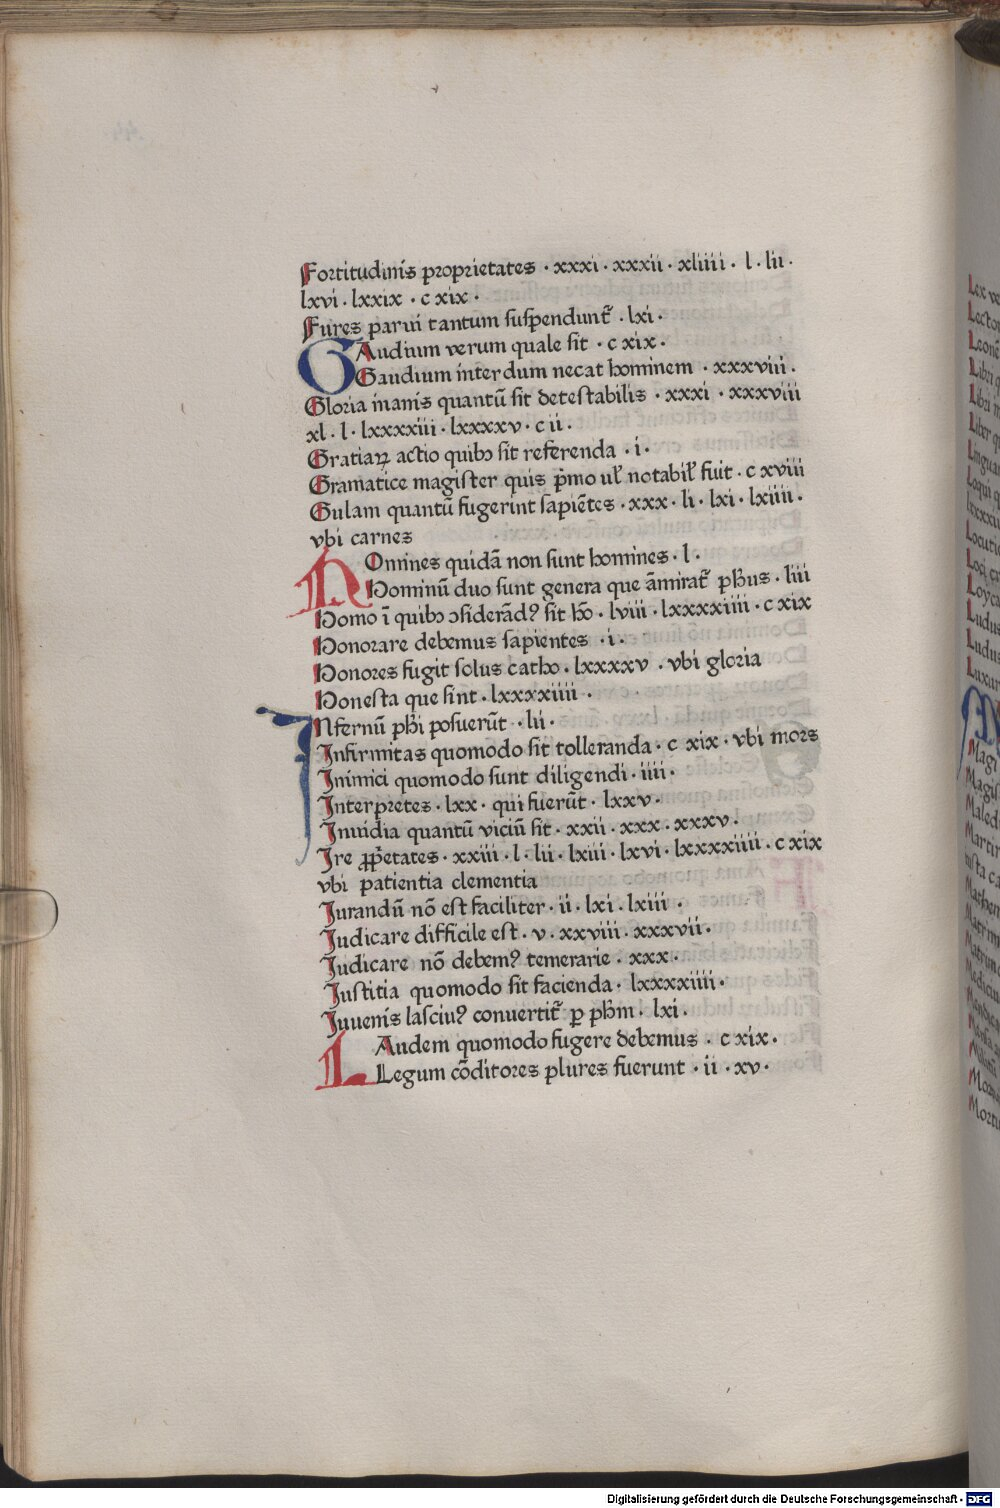 Fortitudinis proprietates · xxxi · xxxii · xliiii · l · lii ·
lxvi · lxxix · c xix ·
Fures parui tantum suspendunt᷑ · lxi ·
GAudium verum quale sit · c xix ·
Gaudium interdum necat hominem · xxxviii ·
Gloria inanis quantū sit detestabilis · xxxi · xxxviii
xl · l · lxxxxiii · lxxxxv · c ii ·
Gratiaꝝ actio quibꝫ sit referenda · i ·
Gramatice magister quis p̄mo uł notabił fuit · c xviii
Gulam quantū fugerint sapiētes · xxx · li · lxi · lxiiii ·
vbi carnes
HOmines quidā non sunt homines · l ·
Hominū duo sunt genera que āmirat᷑ ph̄us · liii
Homo ī quibꝫ ↄsiderād᷒ sit hō · lviii · lxxxxiiii · c xix
Honorare debemus sapientes · i ·
Honores fugit solus catho · lxxxxv · vbi gloria
Honesta que sint · lxxxxiiii ·
INfernū ph̄i posuerūt · lii ·
Infirmitas quomodo sit tolleranda · c xix · vbi mors
Inimici quomodo sunt diligendi · iiii ·
Interpretes · lxx · qui fuerūt · lxxv ·
Inuidia quantū viciū sit · xxii · xxx · xxxv ·
Ire ꝓp̄etates · xxiii · l · lii · lxiii · lxvi · lxxxxiiii · c xix
vbi patientia clementia
Iurandū nō est faciliter · ii · lxi · lxiii ·
Iudicare difficile est · v · xxviii · xxxvii ·
Iudicare nō debem᷒ temerarie · xxx ·
Iustitia quomodo sit facienda · lxxxxiiii ·
Iuuenis lasciu᷒ conuertit᷑ ꝑ ph̄m · lxi ·
LAudem quomodo fugere debemus · c xix ·
Legum cōditores plures fuerunt · ii · xv ·
Digitalisierung gefördert durch die Deutsche Forschungsgemeinschaft - DFG